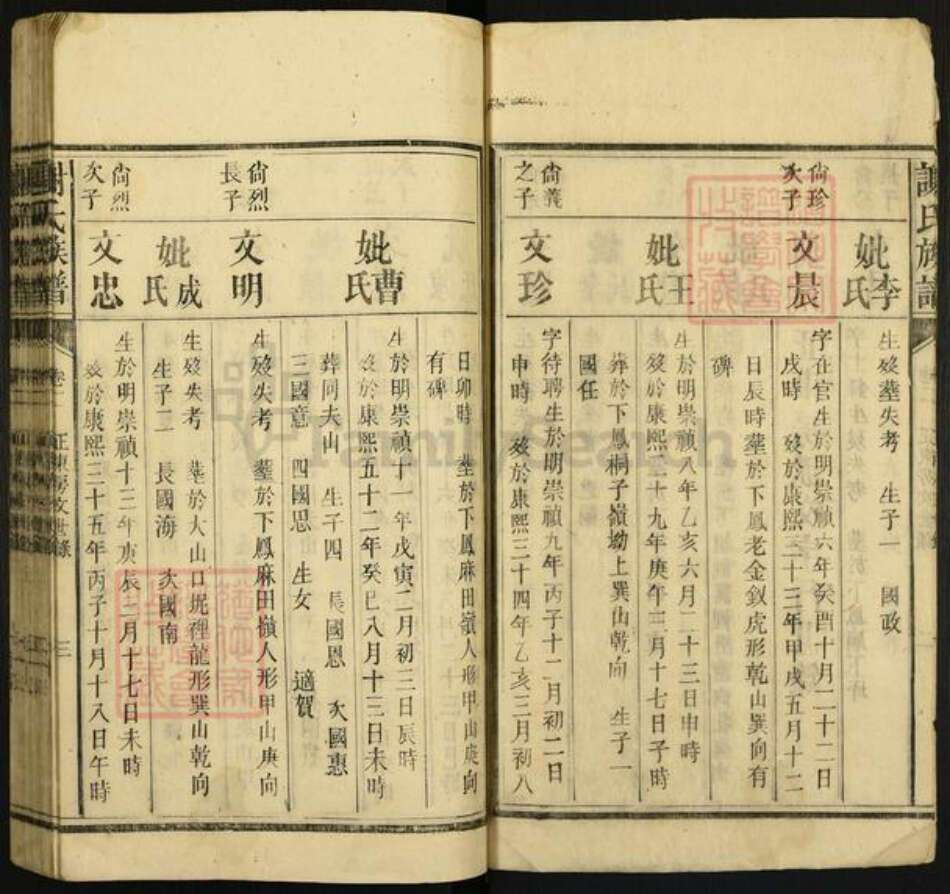 謝氏族譜
妣李氏
生歿塟失考 生子一 國政
尙珍次子
文晨
字在官生於明崇禎六年癸酉十月二十二日
戌時 歿於康熙三十三年甲戌五月十二
日辰時塟於下鳳老金釵虎形乾山巽向有
碑
妣王氏
生於明崇禎八年乙亥六月二十三日申時
歿於康熙二十九年庚午三月十七日子時
葬於下鳳桐子嶺坳上巽山乾向 生子一
國任
尙義之子
文珍
字待聘生於明崇禎九年丙子十二月初二日
申時 歿於康熙三十四年乙亥三月初八
日卯時 塟於下鳳麻田嶺人形甲山庚向
有碑
妣曹氏
生於明崇禎十一年戊寅二月初三日辰時
歿於康熙五十二年癸巳八月十三日未時
葬同夫山 生子四 長國恩 次國惠
三國意 四國思 生女 適賀
尙烈長子
文明
生歿失考 塟於下鳳麻田嶺人形甲山庚向
妣成氏
生歿失考 塟於大山口坭裡龍形巽山乾向
生子二 長國海 次國南
尙烈次子
文忠
生於明崇禎十三年庚辰二月十七日未時
歿於康熙三十五年丙子十月十八日午時
謝氏族譜
卷